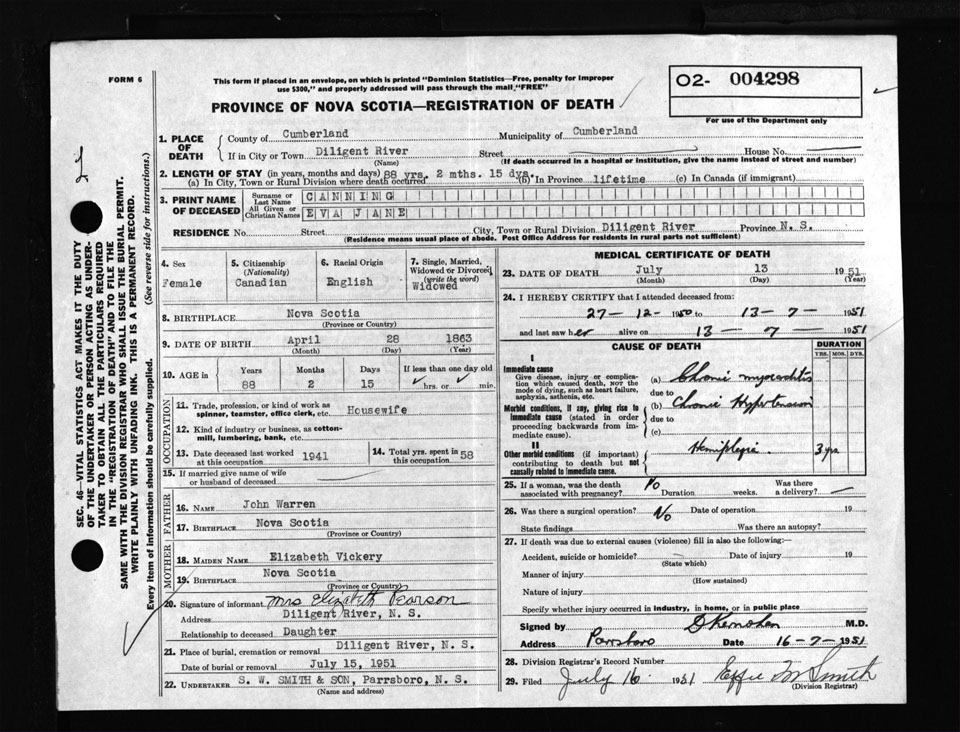 FORM 6
This form if placed in an envelope, on which is printed "Dominion Statistics—Free, penalty for improper
use $300," and properly addressed will pass through the mail "FREE"
O2- 004298
For use of the Department only
PROVINCE OF NOVA SCOTIA—REGISTRATION OF DEATH
SEC. 46—VITAL STATISTICS ACT MAKES IT THE DUTY
OF THE UNDERTAKER OR PERSON ACTING AS UNDER-
TAKER TO OBTAIN ALL THE PARTICULARS REQUIRED
IN THE "REGISTRATION OF DEATH" AND TO FILE THE
SAME WITH THE DIVISION REGISTRAR WHO SHALL ISSUE THE BURIAL PERMIT.
WRITE PLAINLY WITH UNFADING INK. THIS IS A PERMANENT RECORD.
Every item of information should be carefully supplied. (See reverse side for instructions.)
1. PLACE OF DEATH
County of Cumberland Municipality of Cumberland
If in City or Town Diligent River Street House No.
(Name) (If death occurred in a hospital or institution, give the name instead of street and number)
2. LENGTH OF STAY (in years, months and days) 88 yrs. 2 mths. 15 dys.
(a) In City, Town or Rural Division where death occurred (b) In Province lifetime (c) In Canada (if immigrant)
3. PRINT NAME OF DECEASED
Surname or Last Name CANNING
All Given or Christian Names EVA JANE
RESIDENCE No. Street City, Town or Rural Division Diligent River Province N. S.
(Residence means usual place of abode. Post Office Address for residents in rural parts not sufficient)
4. Sex
Female
5. Citizenship (Nationality)
Canadian
6. Racial Origin
English
7. Single, Married, Widowed or Divorced (write the word)
Widowed
8. BIRTHPLACE Nova Scotia
(Province or Country)
9. DATE OF BIRTH April 28 1863
(Month) (Day) (Year)
10. AGE in Years Months Days If less than one day old
88 2 15 hrs. or min.
OCCUPATION
11. Trade, profession, or kind of work as
spinner, teamster, office clerk, etc. Housewife
12. Kind of industry or business, as cotton-
mill, lumbering, bank, etc.
13. Date deceased last worked at this occupation 1941
14. Total yrs. spent in this occupation 58
15. If married give name of wife
or husband of deceased
FATHER
16. NAME John Warren
17. BIRTHPLACE Nova Scotia
(Province or Country)
MOTHER
18. MAIDEN NAME Elizabeth Vickery
19. BIRTHPLACE Nova Scotia
(Province or Country)
20. Signature of informant Mrs Elizabeth Pearson
Address Diligent River, N. S.
Relationship to deceased Daughter
21. Place of burial, cremation or removal Diligent River, N. S.
Date of burial or removal July 15, 1951
22. UNDERTAKER S. W. SMITH & SON, Parrsboro, N. S.
(Name and address)
MEDICAL CERTIFICATE OF DEATH
23. DATE OF DEATH July 13 1951
(Month) (Day) (Year)
24. I HEREBY CERTIFY that I attended deceased from:
27-12-1950 to 13-7-1951
and last saw her alive on 13-7-1951
CAUSE OF DEATH
DURATION
YRS. MOS. DYS.
I
Immediate cause
Give disease, injury or complica-
tion which caused death, NOT the
mode of dying, such as heart failure,
asphyxia, asthenia, etc.
(a) Chronic myocarditis
due to
Morbid conditions, if any, giving rise to
immediate cause (stated in order
proceeding backwards from im-
mediate cause).
(b) Chronic Hypertension
due to
(c)
II
Other morbid conditions (if important)
contributing to death but not
causally related to immediate cause.
Hemiplegia. 3 yrs.
25. If a woman, was the death
associated with pregnancy? No Duration weeks. Was there a delivery?
26. Was there a surgical operation? No Date of operation 19
State findings Was there an autopsy?
27. If death was due to external causes (violence) fill in also the following:—
Accident, suicide or homicide? Date of injury 19
(State which)
Manner of injury
(How sustained)
Nature of injury
Specify whether injury occurred in industry, in home, or in public place
Signed by M.D.
Address Parrsboro Date 16-7-1951
28. Division Registrar's Record Number
29. Filed July 16 1951 Effie M Smith
(Division Registrar)